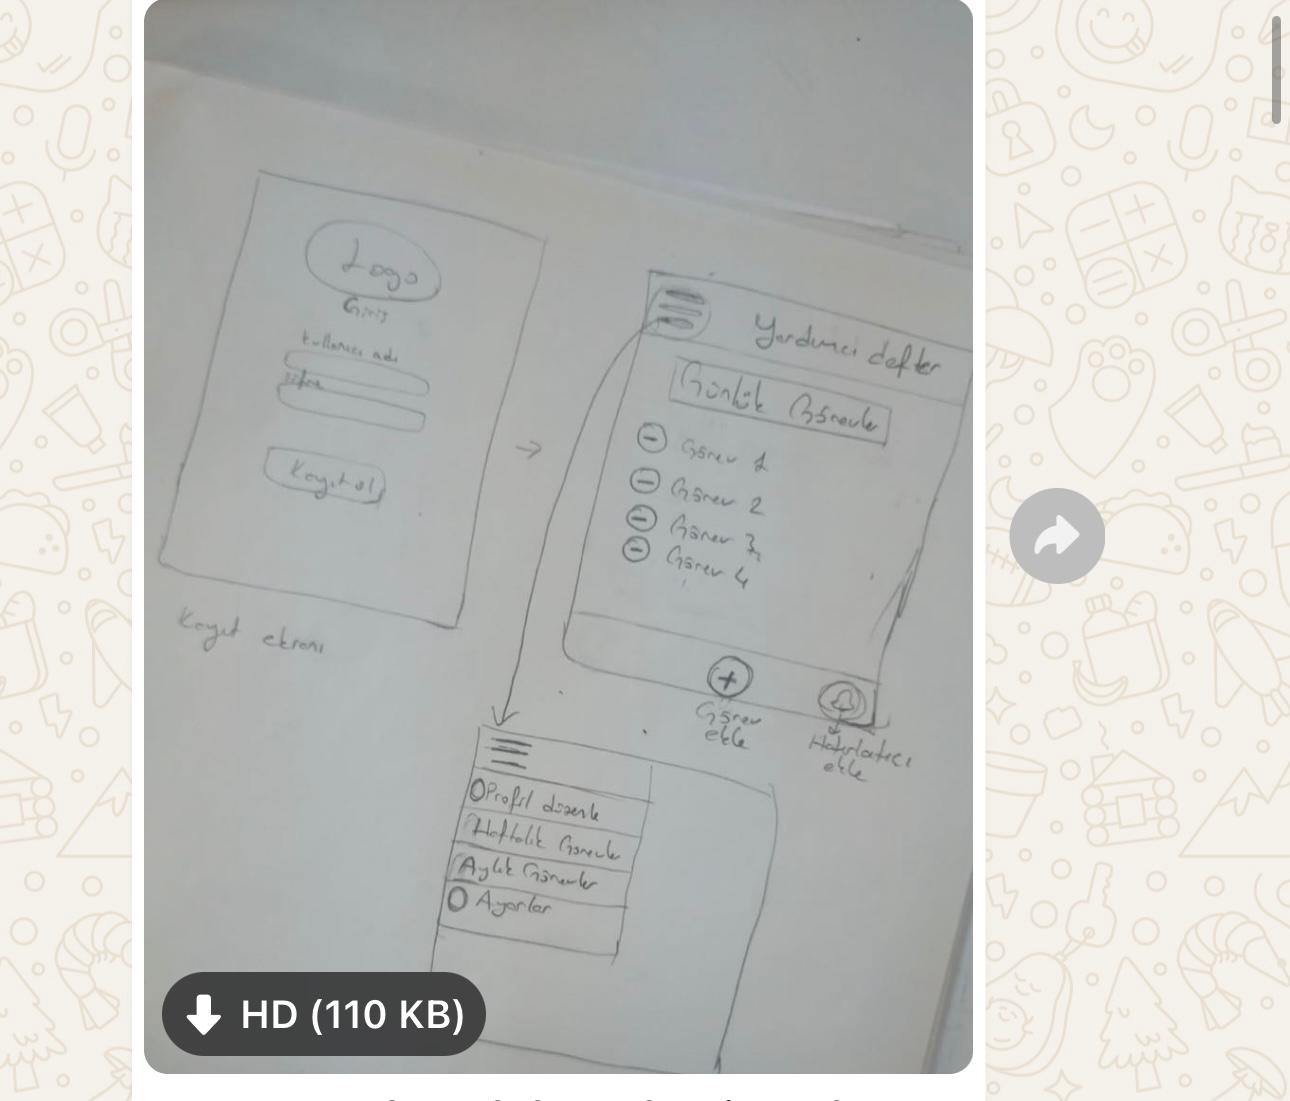 Logo
Giriş
kullanıcı adı
şifre
Kayıt ol
Kayıt ekranı
Yardımcı defter
Günlük Görevler
Görev 1
Görev 2
Görev 3
Görev 4
Görev
ekle
Hatırlatıcı
ekle
Profil düzenle
Haftalık Görevler
Aylık Görevler
Ayarlar
HD (110 KB)